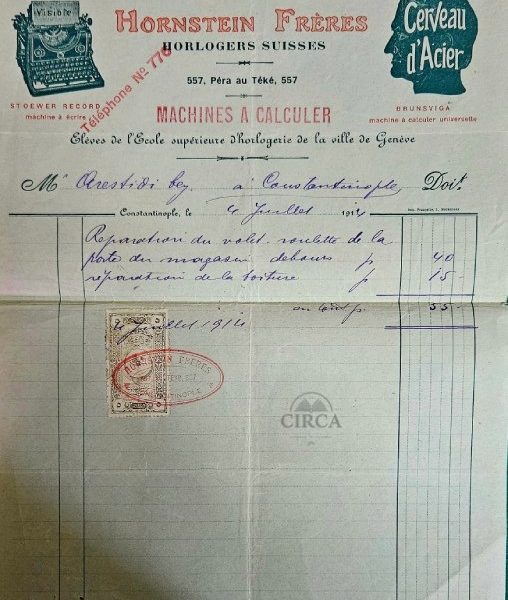 Visible
HORNSTEIN FRÈRES
HORLOGERS SUISSES
Cerveau
d'Acier
557, Péra au Téké, 557
Téléphone No 776
STOEWER RECORD
machine à écrire
MACHINES A CALCULER
BRUNSVIGA
machine à calculer universelle
Elèves de l'Ecole supérieure d'horlogerie de la ville de Genève
Mr Arestidi bey à Constantinople, Doit
Constantinople, le 4 Juillet 1914
Reparation du volet roulette de la
porte du magasin debours p 40
réparation de la toiture p 15
en tout p. 55
4 Juillet 1914
HORNSTEIN FRÈRES
CIRCA